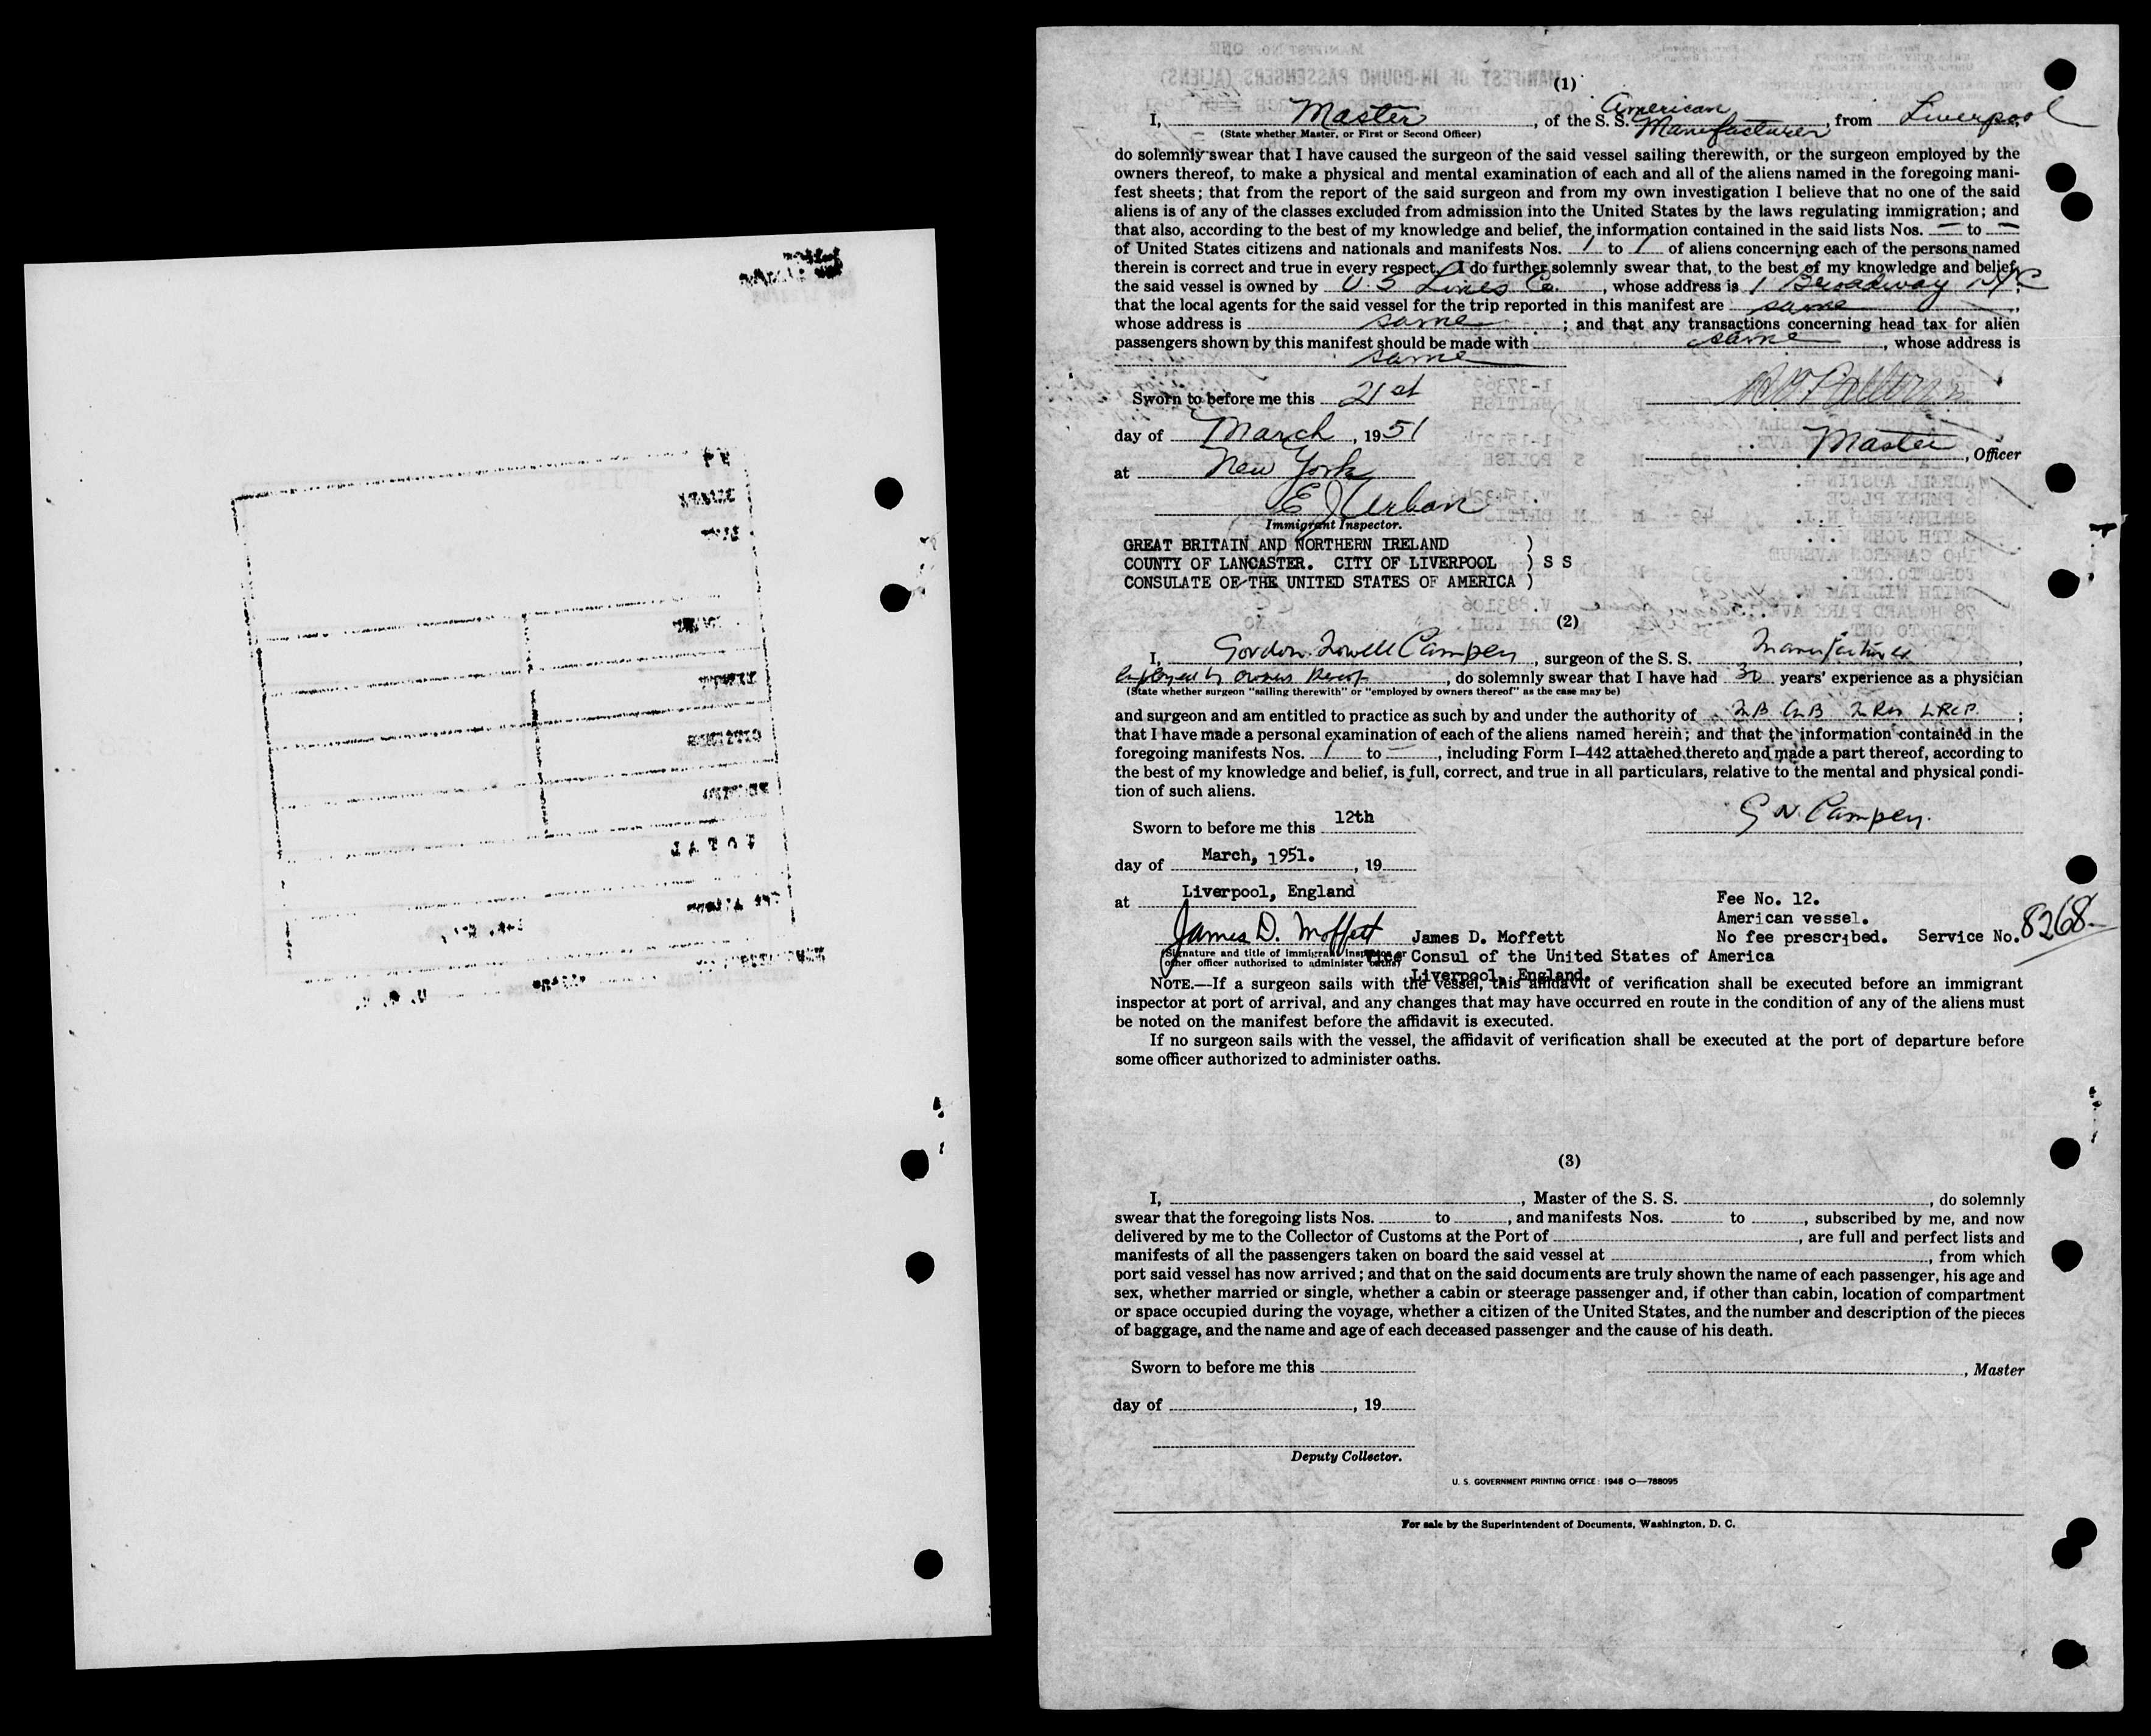 (1)
I, Master, of the S. S. American Manufacturer, from Liverpool
(State whether Master, or First or Second Officer)
do solemnly swear that I have caused the surgeon of the said vessel sailing therewith, or the surgeon employed by the
owners thereof, to make a physical and mental examination of each and all of the aliens named in the foregoing mani-
fest sheets; that from the report of the said surgeon and from my own investigation I believe that no one of the said
aliens is of any of the classes excluded from admission into the United States by the laws regulating immigration; and
that also, according to the best of my knowledge and belief, the information contained in the said lists Nos. — to —
of United States citizens and nationals and manifests Nos. 1 to 1 of aliens concerning each of the persons named
therein is correct and true in every respect. I do further solemnly swear that, to the best of my knowledge and belief,
the said vessel is owned by U. S Lines Co., whose address is 1 Broadway NYC;
that the local agents for the said vessel for the trip reported in this manifest are same,
whose address is same; and that any transactions concerning head tax for alien
passengers shown by this manifest should be made with same, whose address is
same
Sworn to before me this 21st
day of March, 1951
Master, Officer
at New York
E J Urban
Immigrant Inspector.
GREAT BRITAIN AND NORTHERN IRELAND )
COUNTY OF LANCASTER. CITY OF LIVERPOOL ) S S
CONSULATE OF THE UNITED STATES OF AMERICA )
(2)
I, Gordon Campen, surgeon of the S. S. Manufacturer,
employed by owners thereof, do solemnly swear that I have had 30 years' experience as a physician
(State whether surgeon "sailing therewith" or "employed by owners thereof" as the case may be)
and surgeon and am entitled to practice as such by and under the authority of LRCP.;
that I have made a personal examination of each of the aliens named herein; and that the information contained in the
foregoing manifests Nos. 1 to —, including Form I–442 attached thereto and made a part thereof, according to
the best of my knowledge and belief, is full, correct, and true in all particulars, relative to the mental and physical condi-
tion of such aliens.
Sworn to before me this 12th
G N. Campen.
day of March, 1951., 19
at Liverpool, England
Fee No. 12.
American vessel.
No fee prescribed. Service No. 8268
James D. Moffett James D. Moffett
(Signature and title of immigrant inspector or
other officer authorized to administer oaths)
Vice Consul of the United States of America
Liverpool, England.
NOTE.—If a surgeon sails with the vessel, this affidavit of verification shall be executed before an immigrant
inspector at port of arrival, and any changes that may have occurred en route in the condition of any of the aliens must
be noted on the manifest before the affidavit is executed.
If no surgeon sails with the vessel, the affidavit of verification shall be executed at the port of departure before
some officer authorized to administer oaths.
(3)
I, , Master of the S. S. , do solemnly
swear that the foregoing lists Nos. to , and manifests Nos. to , subscribed by me, and now
delivered by me to the Collector of Customs at the Port of , are full and perfect lists and
manifests of all the passengers taken on board the said vessel at , from which
port said vessel has now arrived; and that on the said documents are truly shown the name of each passenger, his age and
sex, whether married or single, whether a cabin or steerage passenger and, if other than cabin, location of compartment
or space occupied during the voyage, whether a citizen of the United States, and the number and description of the pieces
of baggage, and the name and age of each deceased passenger and the cause of his death.
Sworn to before me this
, Master
day of , 19
Deputy Collector.
U. S. GOVERNMENT PRINTING OFFICE: 1948 O—788095
For sale by the Superintendent of Documents, Washington, D. C.